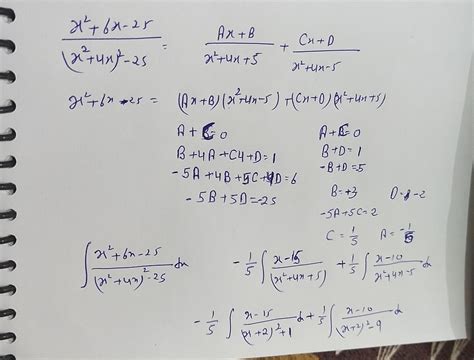 (x²+6x-25)/((x²+4x)²-25) = (Ax+B)/(x²+4x+5) + (Cx+D)/(x²+4x-5)
x²+6x-25 = (Ax+B)(x²+4x-5)+(Cx+D)(x²+4x+5)
A+C=0
B+4A+C4+D=1
-5A+4B+5C+4D=6
-5B+5D=-25
A+C=0
B+D=1
-B+D=5
B=+3 D=-2
-5A+5C=2
C=1/5 A=-1/5
∫(x²+6x-25)/((x²+4x)²-25)dx
-1/5∫(x-15)/(x²+4x+5) +1/5∫(x-10)/(x²+4x-5)d
-1/5∫(x-15)/((x+2)²+1)d+1/5∫(x-10)/((x+2)²-9)d